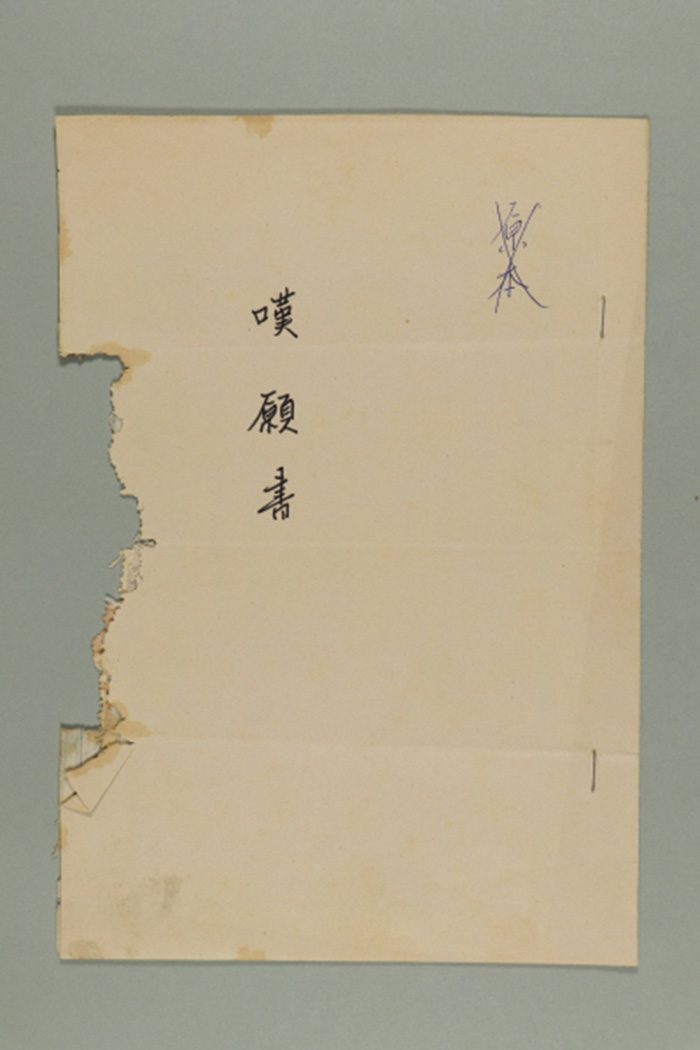 原本
嘆願書